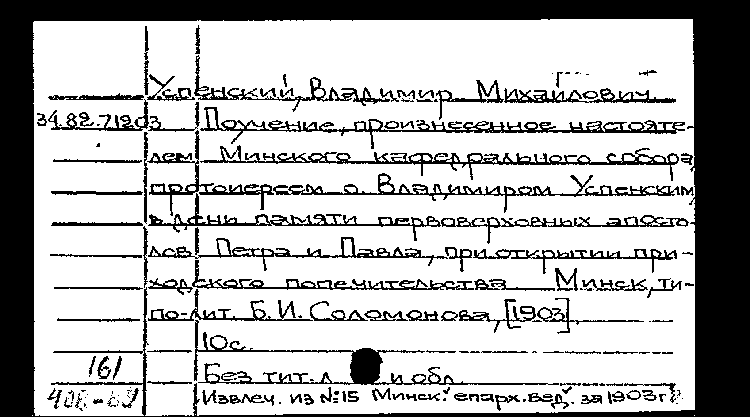 Успенский, Владимир Михайлович
34.82.7120з Поучение, произнесенное настояте-
лем Минского кафедрального собора
протоиереем о. Владимиром Успенским
в день памяти первоверховных апосто-
лов Петра и Павла, при открытии при-
ходского попечительства. Минск, ти-
по-лит. Б.И. Соломонова, [1903].
10с.
161 Без тит. л. и обл.
Извлеч. из №15 Минск. епарх. вед. за 1903г.